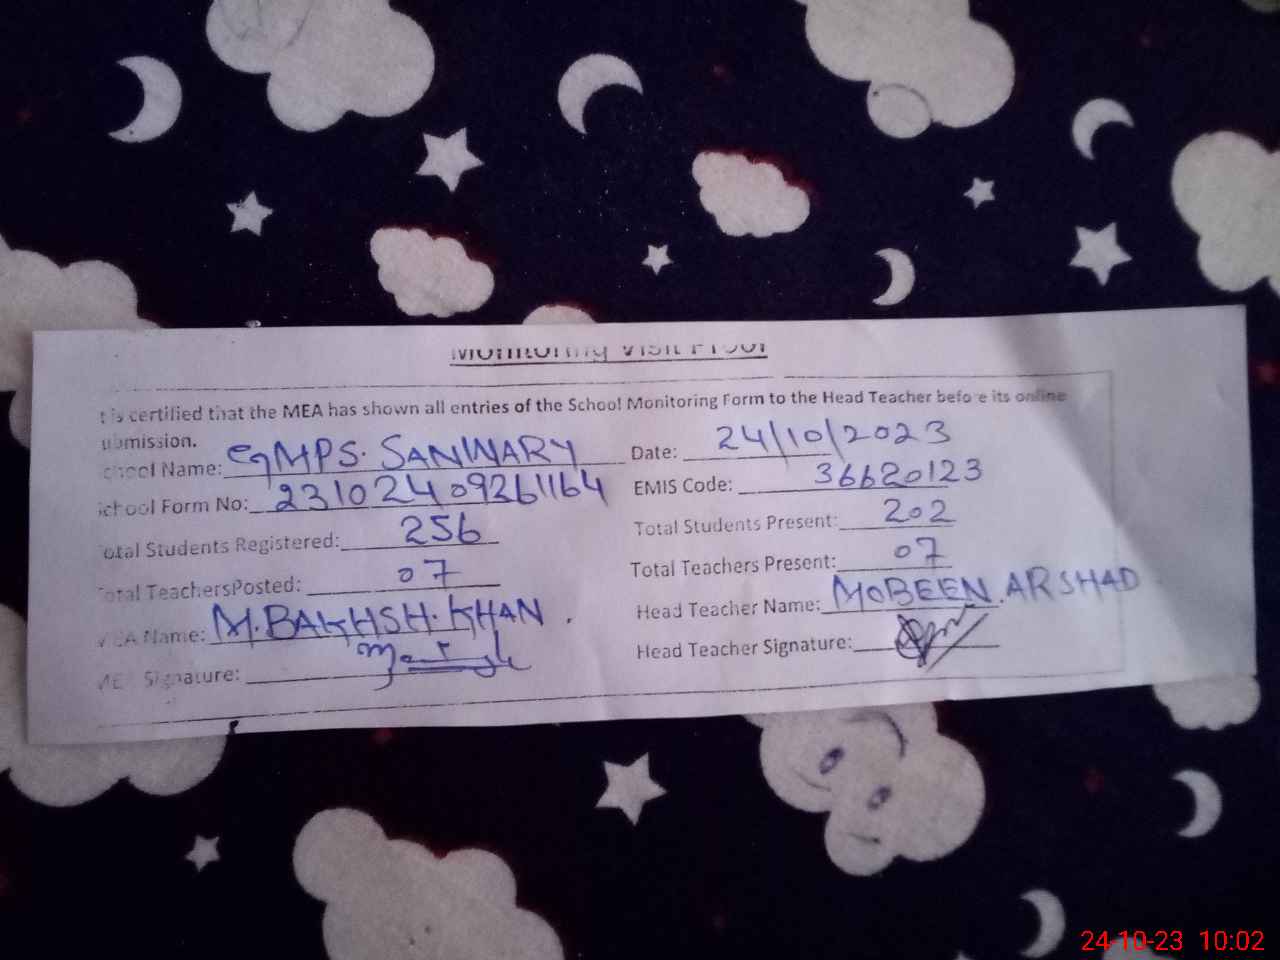 Monitoring Visit Proof
t is certified that the MEA has shown all entries of the School Monitoring Form to the Head Teacher before its online
ubmission.
chool Name: GMPS. SANWARY Date: 24/10/2023
chool Form No: 23102409261164 EMIS Code: 36620123
otal Students Registered: 256 Total Students Present: 202
otal TeachersPosted: 07 Total Teachers Present: 07
MEA Name: M. BAKHSH. KHAN. Head Teacher Name: MOBEEN. ARSHAD
MEA Signature: Head Teacher Signature:
24-10-23 10:02